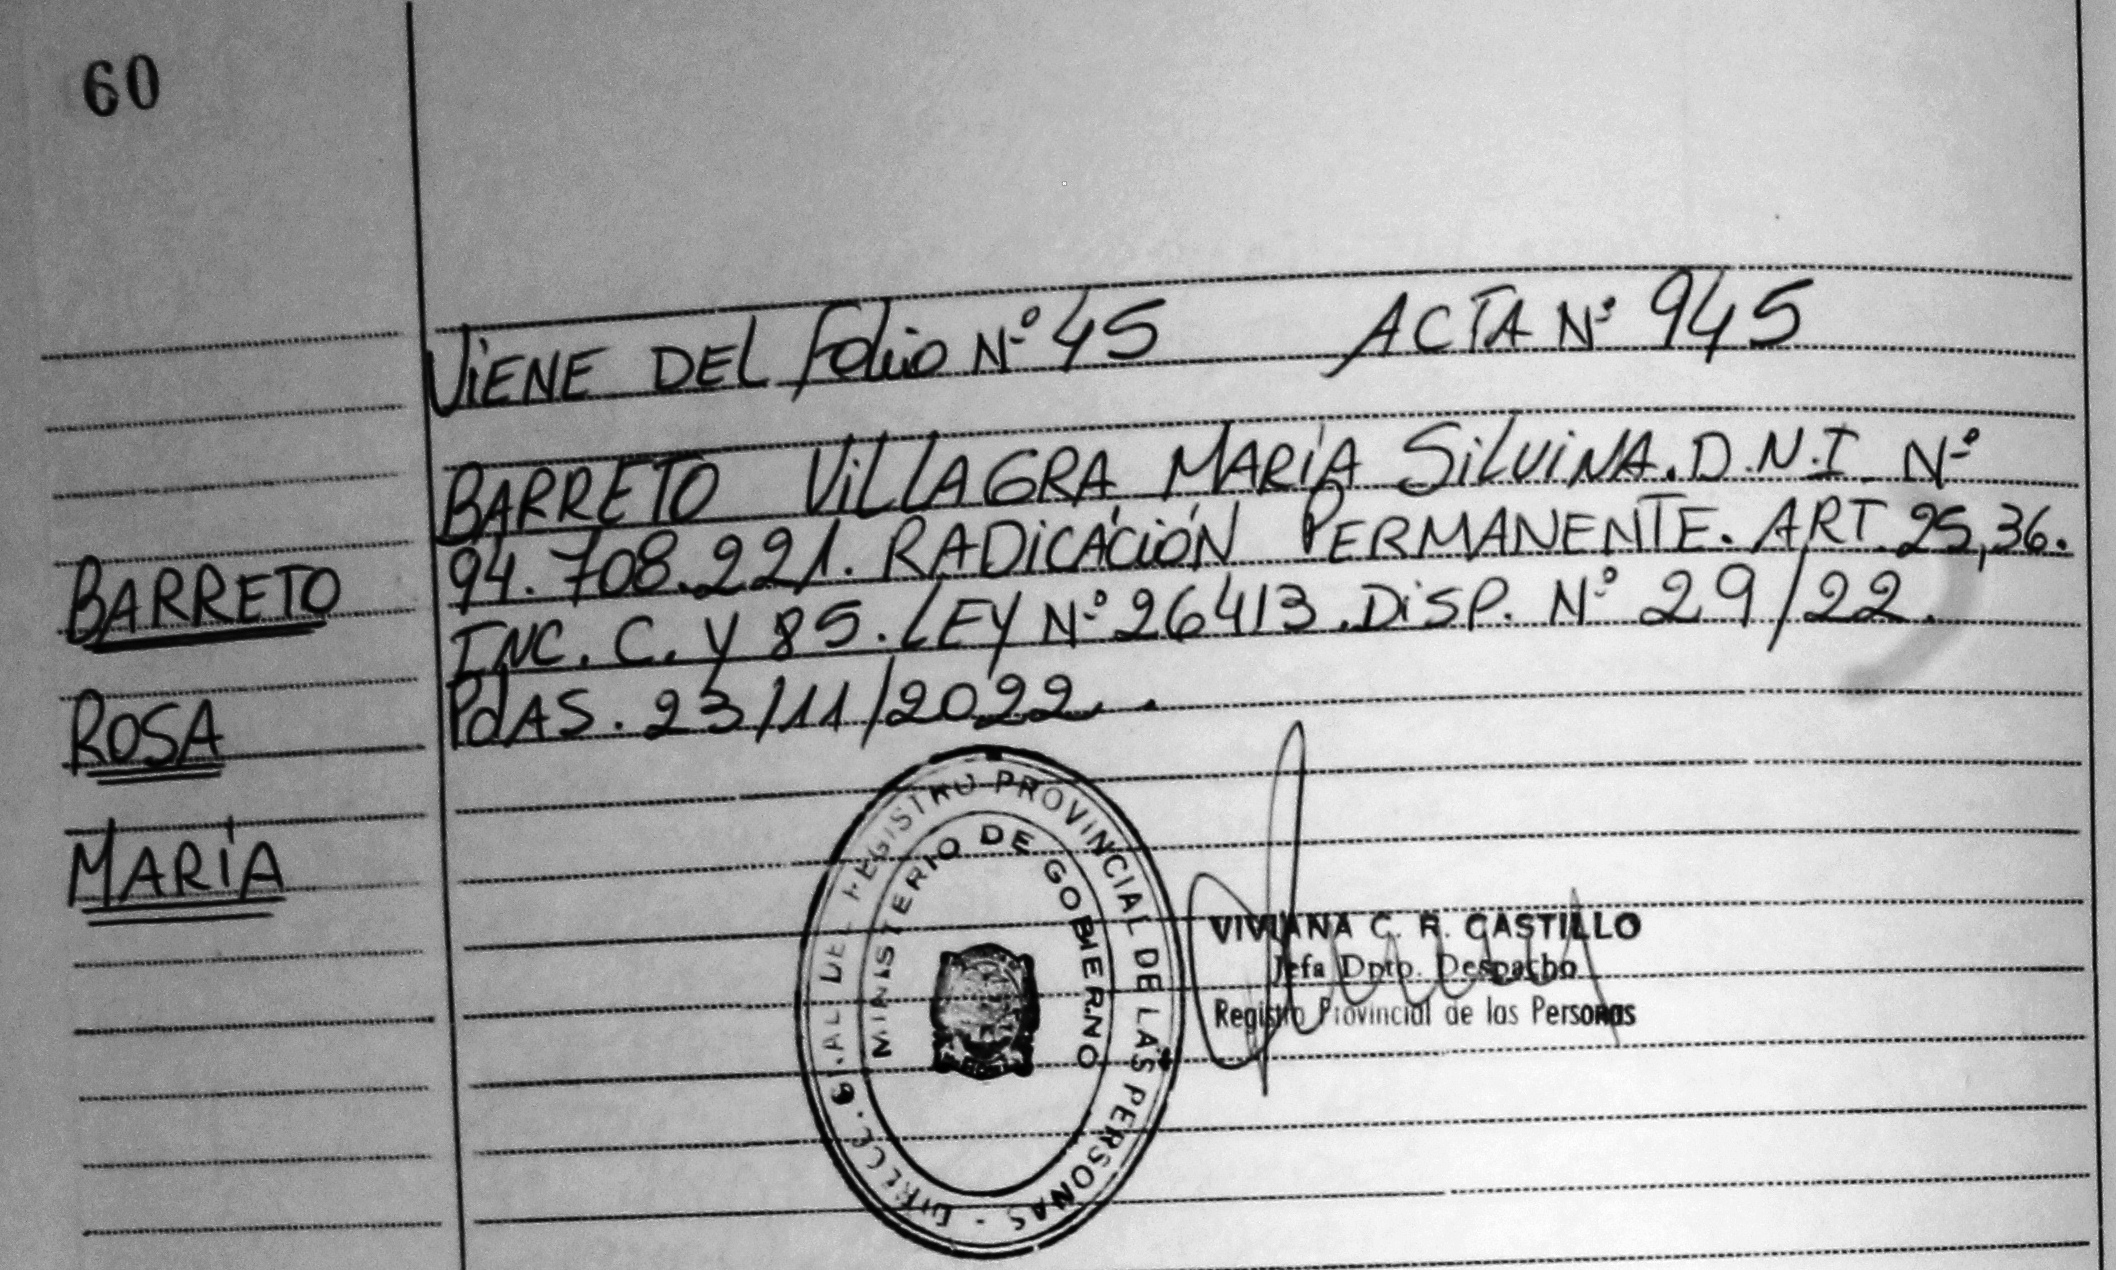 60
VIENE DEL Folio Nº 45 ACTA Nº 945
BARRETO VILLAGRA, MARÍA SILVINA. D.N.I. Nº
94.708.221. RADICACIÓN PERMANENTE. ART. 25,36.
INC. C. Y 85. LEY Nº 26413. DISP. Nº 29/22.
PdAS. 23/11/2022.
BARRETO
ROSA
MARÍA
REGISTRO PROVINCIAL DE LAS PERSONAS -
MINISTERIO DE GOBIERNO
VIVIANA C. R. CASTILLO
Jefa Dpto. Despacho
Registro Provincial de las Personas